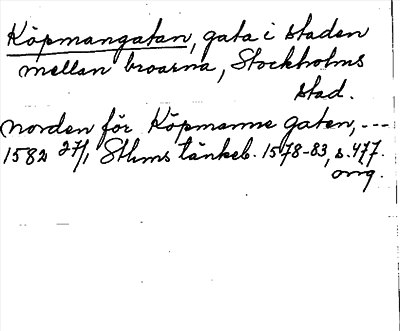 Köpmangatan, gata i staden
mellan broarna, Stockholms
stad.
norden för Köpmanne gaten, ---
1582 27/1 Sthms tänkeb. 1578-83, s. 477.
orig.